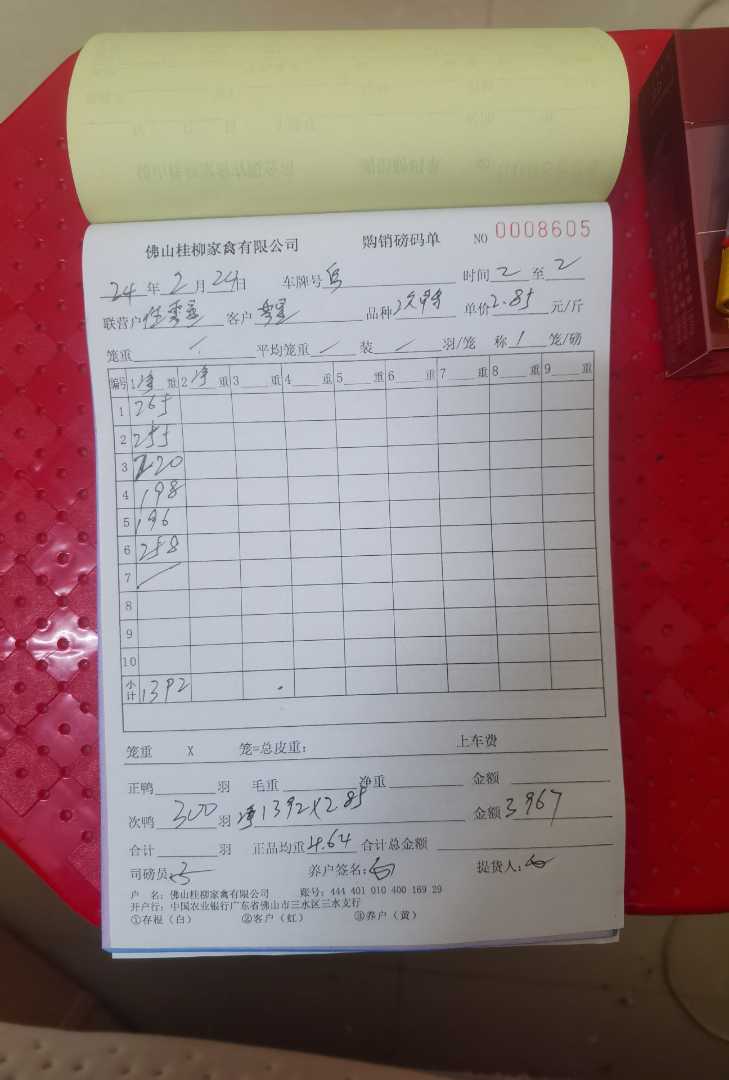 佛山桂柳家禽有限公司 购销磅码单 NO 0008605
24 年 2 月 24 日 车牌号 时间 2 至 2
联营户 客户 品种 次鸭 单价 2.85 元/斤
笼重 / 平均笼重 / 装 / 羽/笼 称 / 笼/磅
编号 1 净 重 2 净 重 3 重 4 重 5 重 6 重 7 重 8 重 9 重
1 265
2 255
3 220
4 198
5 196
6 258
7 /
8
9
10
小计 1392
笼重 X 笼=总皮重: 上车费
正鸭 羽 毛重 净重 金额
次鸭 300 羽 净 1392X2.85 金额 3967
合计 羽 正品均重 4.64 合计总金额
司磅员: 养户签名: 提货人:
户 名: 佛山桂柳家禽有限公司 账号: 444 401 010 400 169 29
开户行: 中国农业银行广东省佛山市三水区三水支行
①存根（白） ②客户（红） ③养户（黄）